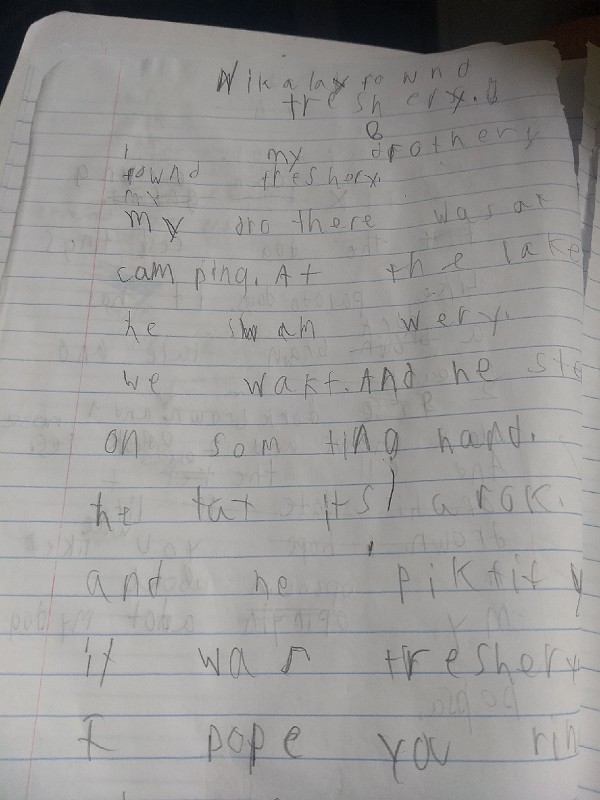 Nikalay fownd
treshery.
my brothery
fownd treshery.
my
my brothere was at
camping. At the lake
he swam wery.
we wakt. And he ste
on som ting hand.
he tat its a rok.
and he piktit
it was treshery
I pope you rin